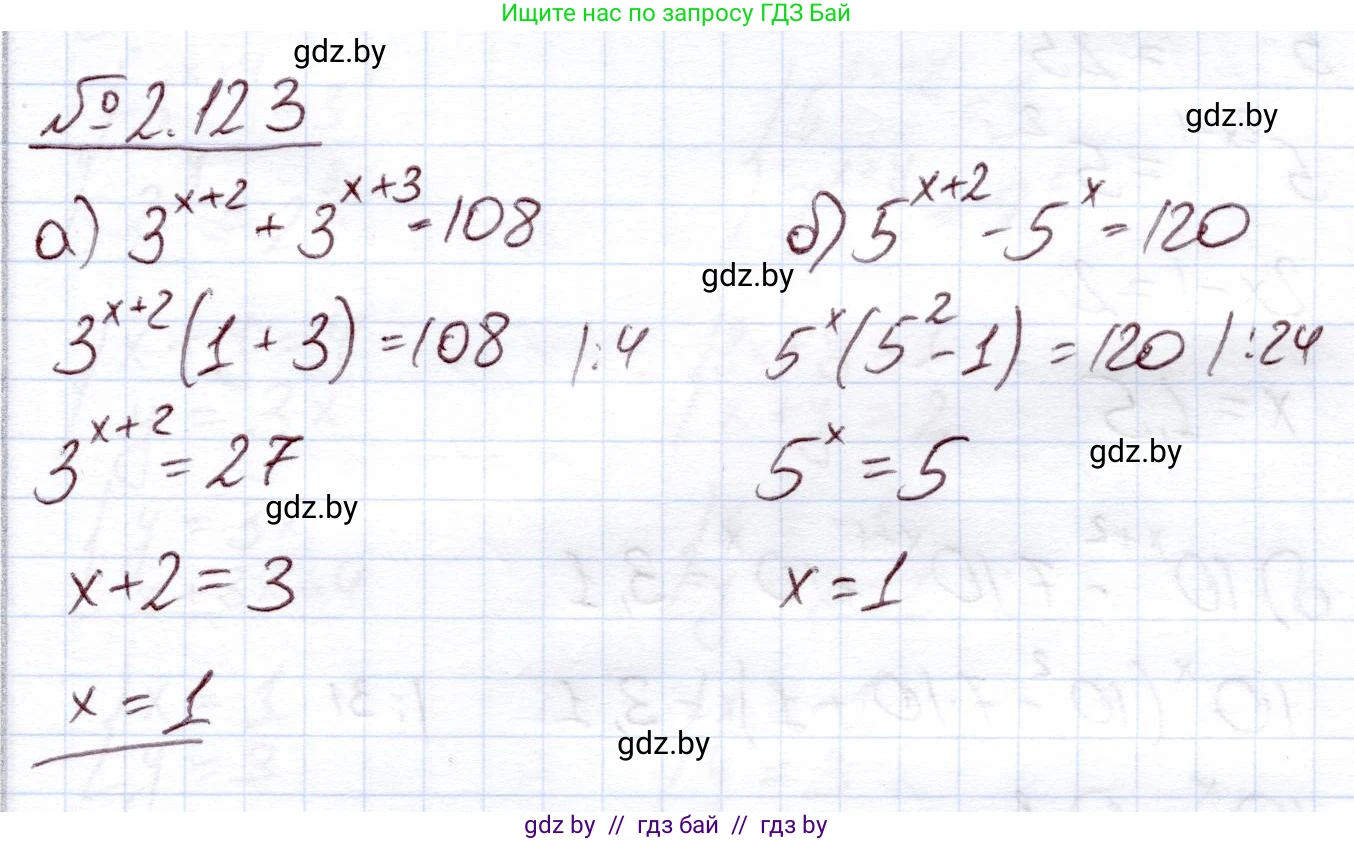 Ищите нас по запросу ГДЗ Бай
gdz.by
№ 2.123
gdz.by
а) 3^{x+2} + 3^{x+3} = 108
3^{x+2} (1 + 3) = 108 |:4
3^{x+2} = 27
gdz.by
x+2 = 3
x = 1
б) 5^{x+2} - 5^x = 120
gdz.by
5^x (5^2 - 1) = 120 |:24
5^x = 5
gdz.by
x = 1
gdz.by
gdz by // гдз бай // гдз by